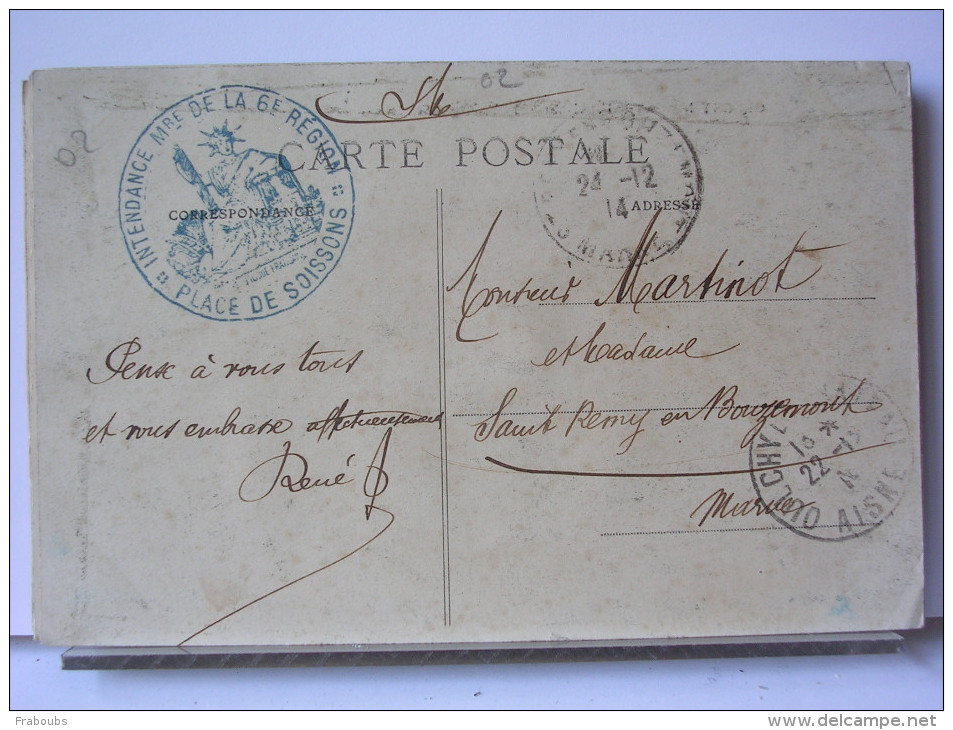 02
02
INTENDANCE MRE DE LA 6E RÉGION
PLACE DE SOISSONS
CARTE POSTALE
24 -12
14
MARNE
CORRESPONDANCE
ADRESSE
Pense à vous tous
et vous embrasse affectueusement
René
Monsieur Martinot
et Madame
Saint Remy en Bouzemont
Marne
OULCHY
22 -12
AISNE
Fraboubs
www.delcampe.net